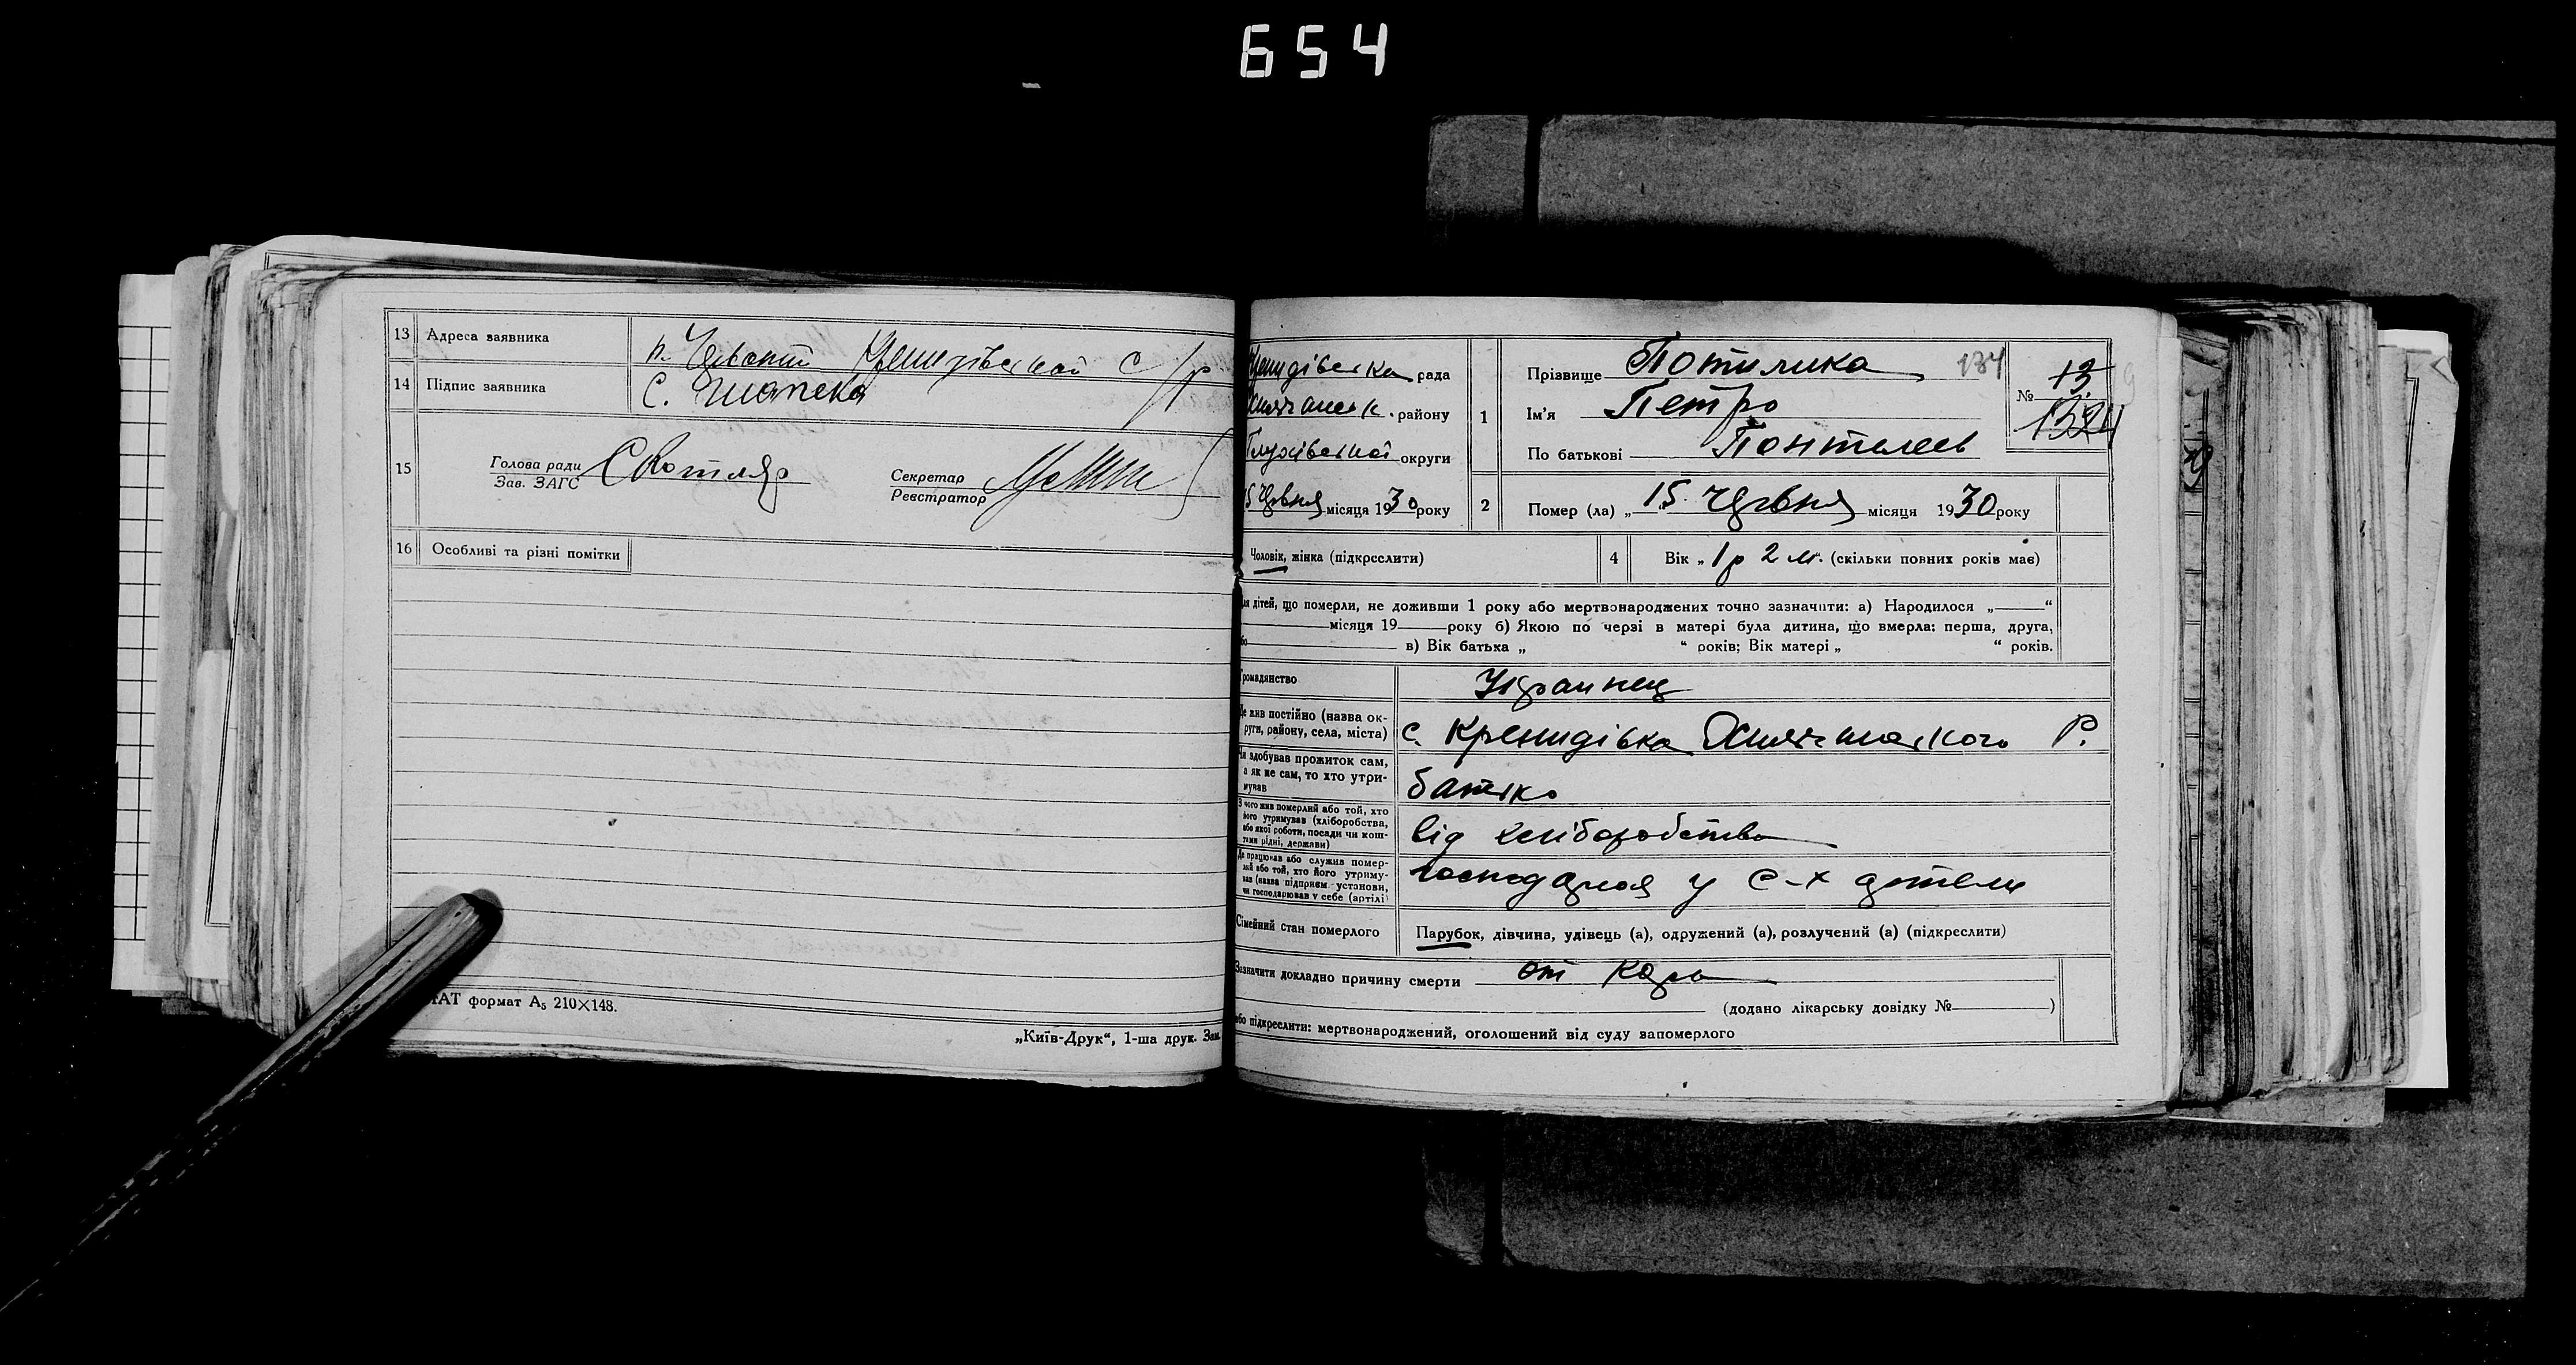 654
13 Адреса заявника
п. Креидівської С/р
14 Підпис заявника
С.
15 Голова ради
Зав. ЗАГС
Секретар
Реєстратор
16 Особливі та різні помітки
формат А5 210×148.
„Київ-Друк“, 1-ша друк. Зам.
рада
району
Глухівської округи
15 червня місяця 1930 року
1 Прізвище Потилика 134
Ім'я Петро
По батькові Пантелеев
№ 13
1324
2 Помер (ла) „ 15 червня місяця 1930 року
Чоловік, жінка (підкреслити)
4 Вік „ 1 р 2 м. (скільки повних років має)
для дітей, що померли, не доживши 1 року або мертвонароджених точно зазначити: а) Народилося „ “
місяця 19 року б) Якою по черзі в матері була дитина, що вмерла: перша, друга,
або в) Вік батька „ “ років; Вік матері „ “ років.
Громадянство Украинец
Де жив постійно (назва ок-
руги, району, села, міста) с. Креидівка Р.
Чи здобував прожиток сам,
а як не сам, то хто утри-
мував батько
З чого жив померлий або той, хто
його утримував (хліборобства,
або якої роботи, посади чи кош-
тами рідні, держави) від хліборобства
Де працював або служив помер-
лий або той, хто його утриму-
вав (назва підприєм. установи,
чи господарював у себе (артілі) у С-х артели
Сімейний стан померлого Парубок, дівчина, удівець (а), одружений (а), розлучений (а) (підкреслити)
Зазначити докладно причину смерти от кору
(додано лікарську довідку № )
або підкреслити: мертвонароджений, оголошений від суду запомерлого